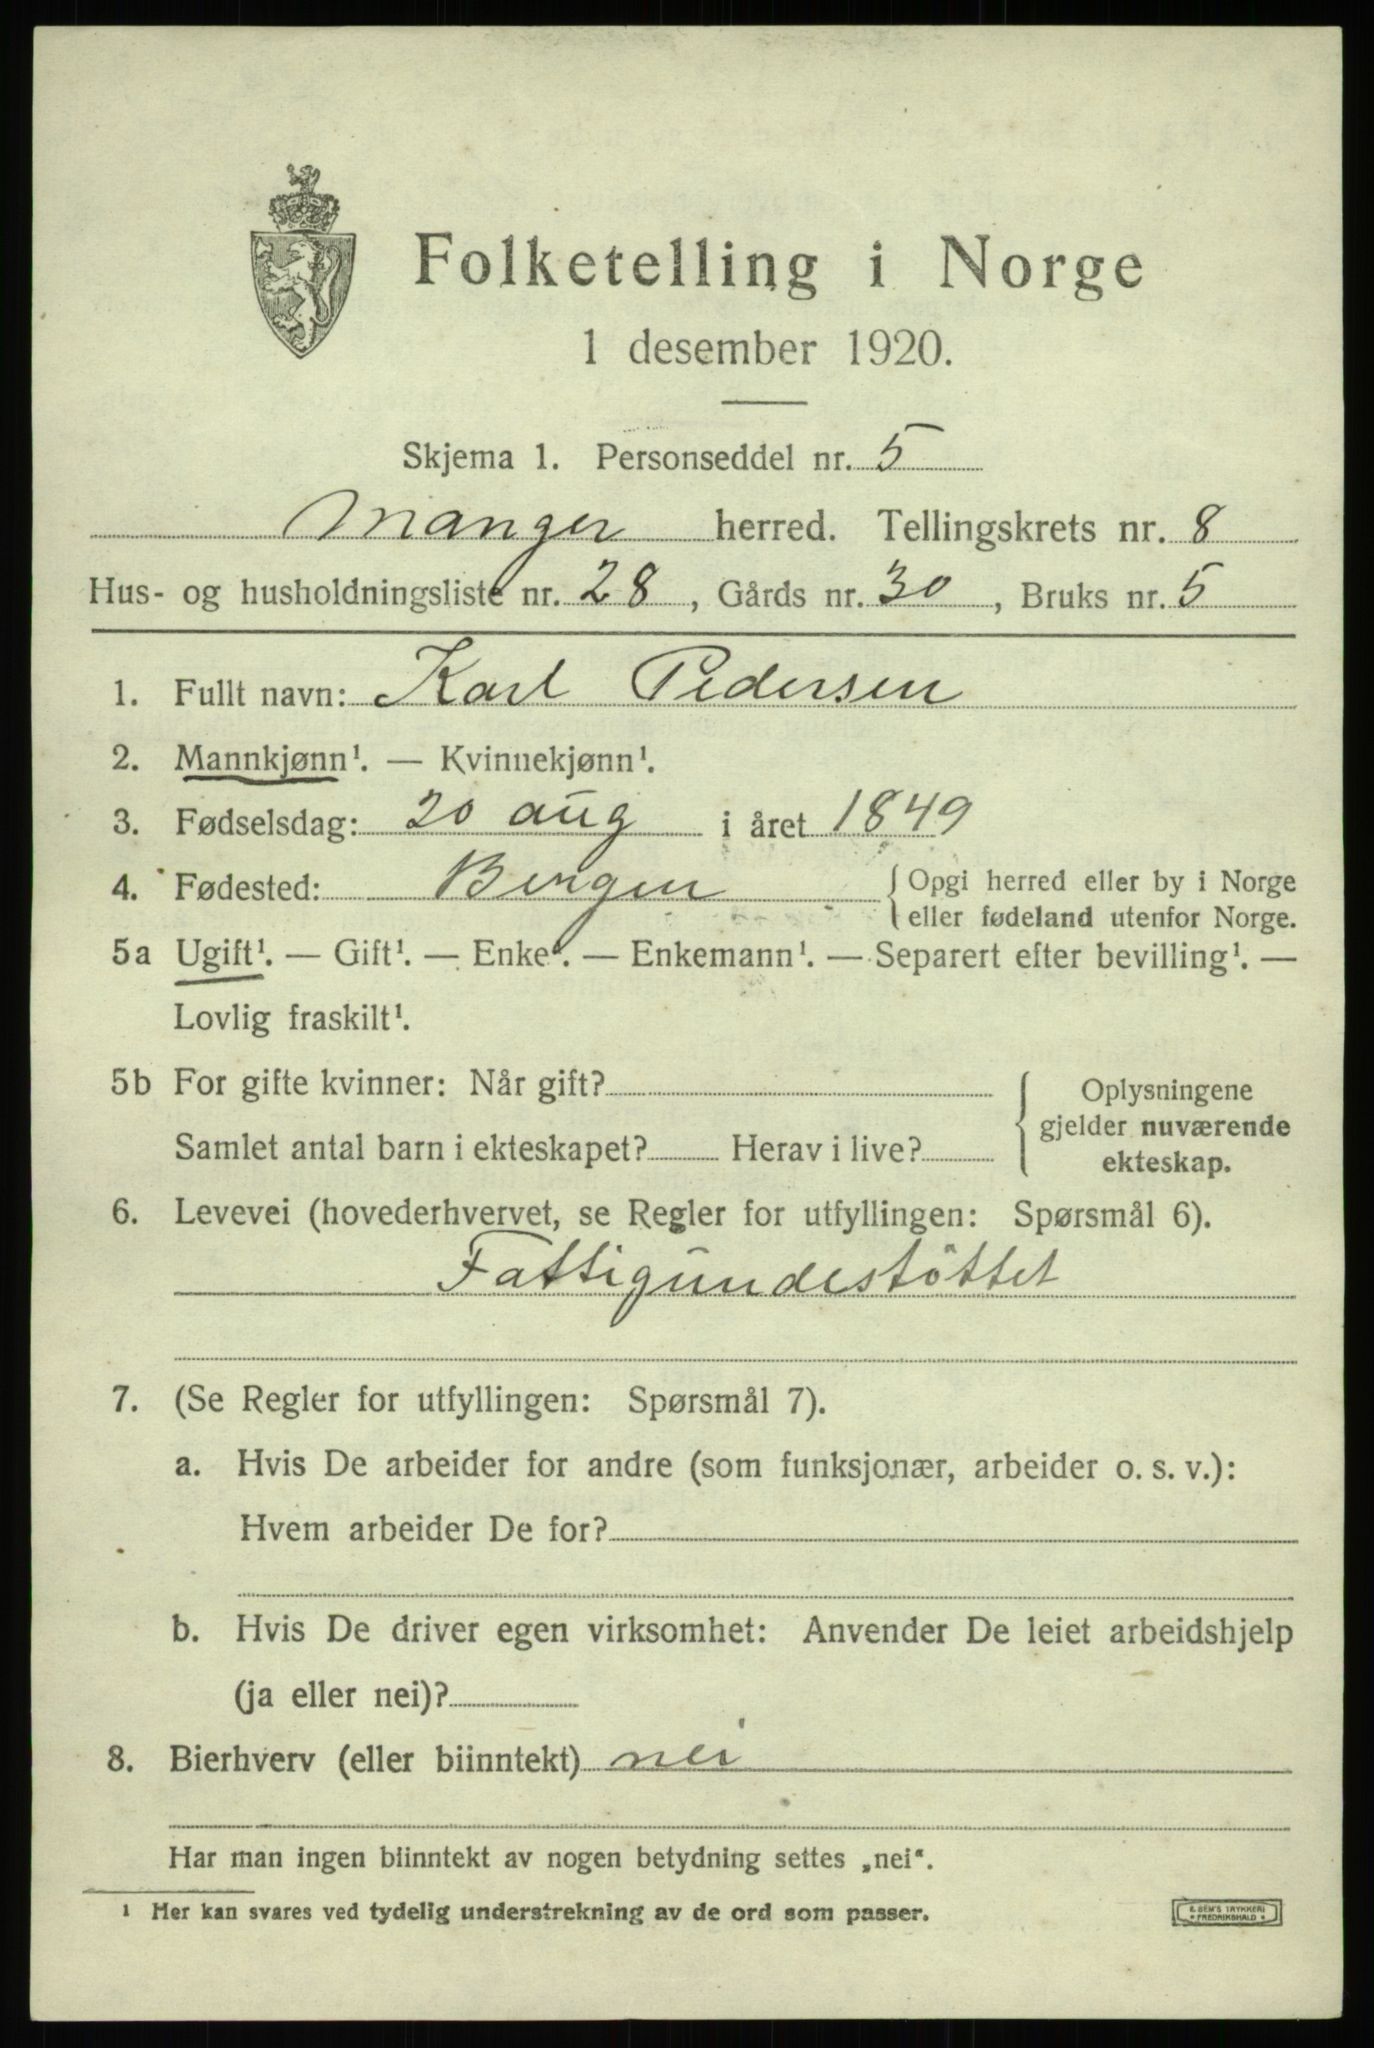 Folketelling i Norge
1 desember 1920.
Skjema 1. Personseddel nr. 5
Manger herred. Tellingskrets nr. 8
Hus- og husholdningsliste nr. 28, Gårds nr. 30, Bruks nr. 5
1. Fullt navn: Karl Pedersen
2. Mannkjønn¹. — Kvinnekjønn¹.
3. Fødselsdag: 20 aug i året 1849
4. Fødested: Bergen {Opgi herred eller by i Norge
eller fødeland utenfor Norge.
5a Ugift¹. — Gift¹. — Enke¹. — Enkemann¹. — Separert efter bevilling¹. —
Lovlig fraskilt¹.
5b For gifte kvinner: Når gift?
Samlet antal barn i ekteskapet? Herav i live?
{Oplysningene
gjelder nuværende
ekteskap.
6. Levevei (hovederhvervet, se Regler for utfyllingen: Spørsmål 6).
Fattigundestöttet
7. (Se Regler for utfyllingen: Spørsmål 7).
a. Hvis De arbeider for andre (som funksjonær, arbeider o. s. v.):
Hvem arbeider De for?
b. Hvis De driver egen virksomhet: Anvender De leiet arbeidshjelp
(ja eller nei)?
8. Bierhverv (eller biinntekt) nei
Har man ingen biinntekt av nogen betydning settes „nei“.
¹ Her kan svares ved tydelig understrekning av de ord som passer.
E. SEM'S TRYKKERI
FREDRIKSHALD